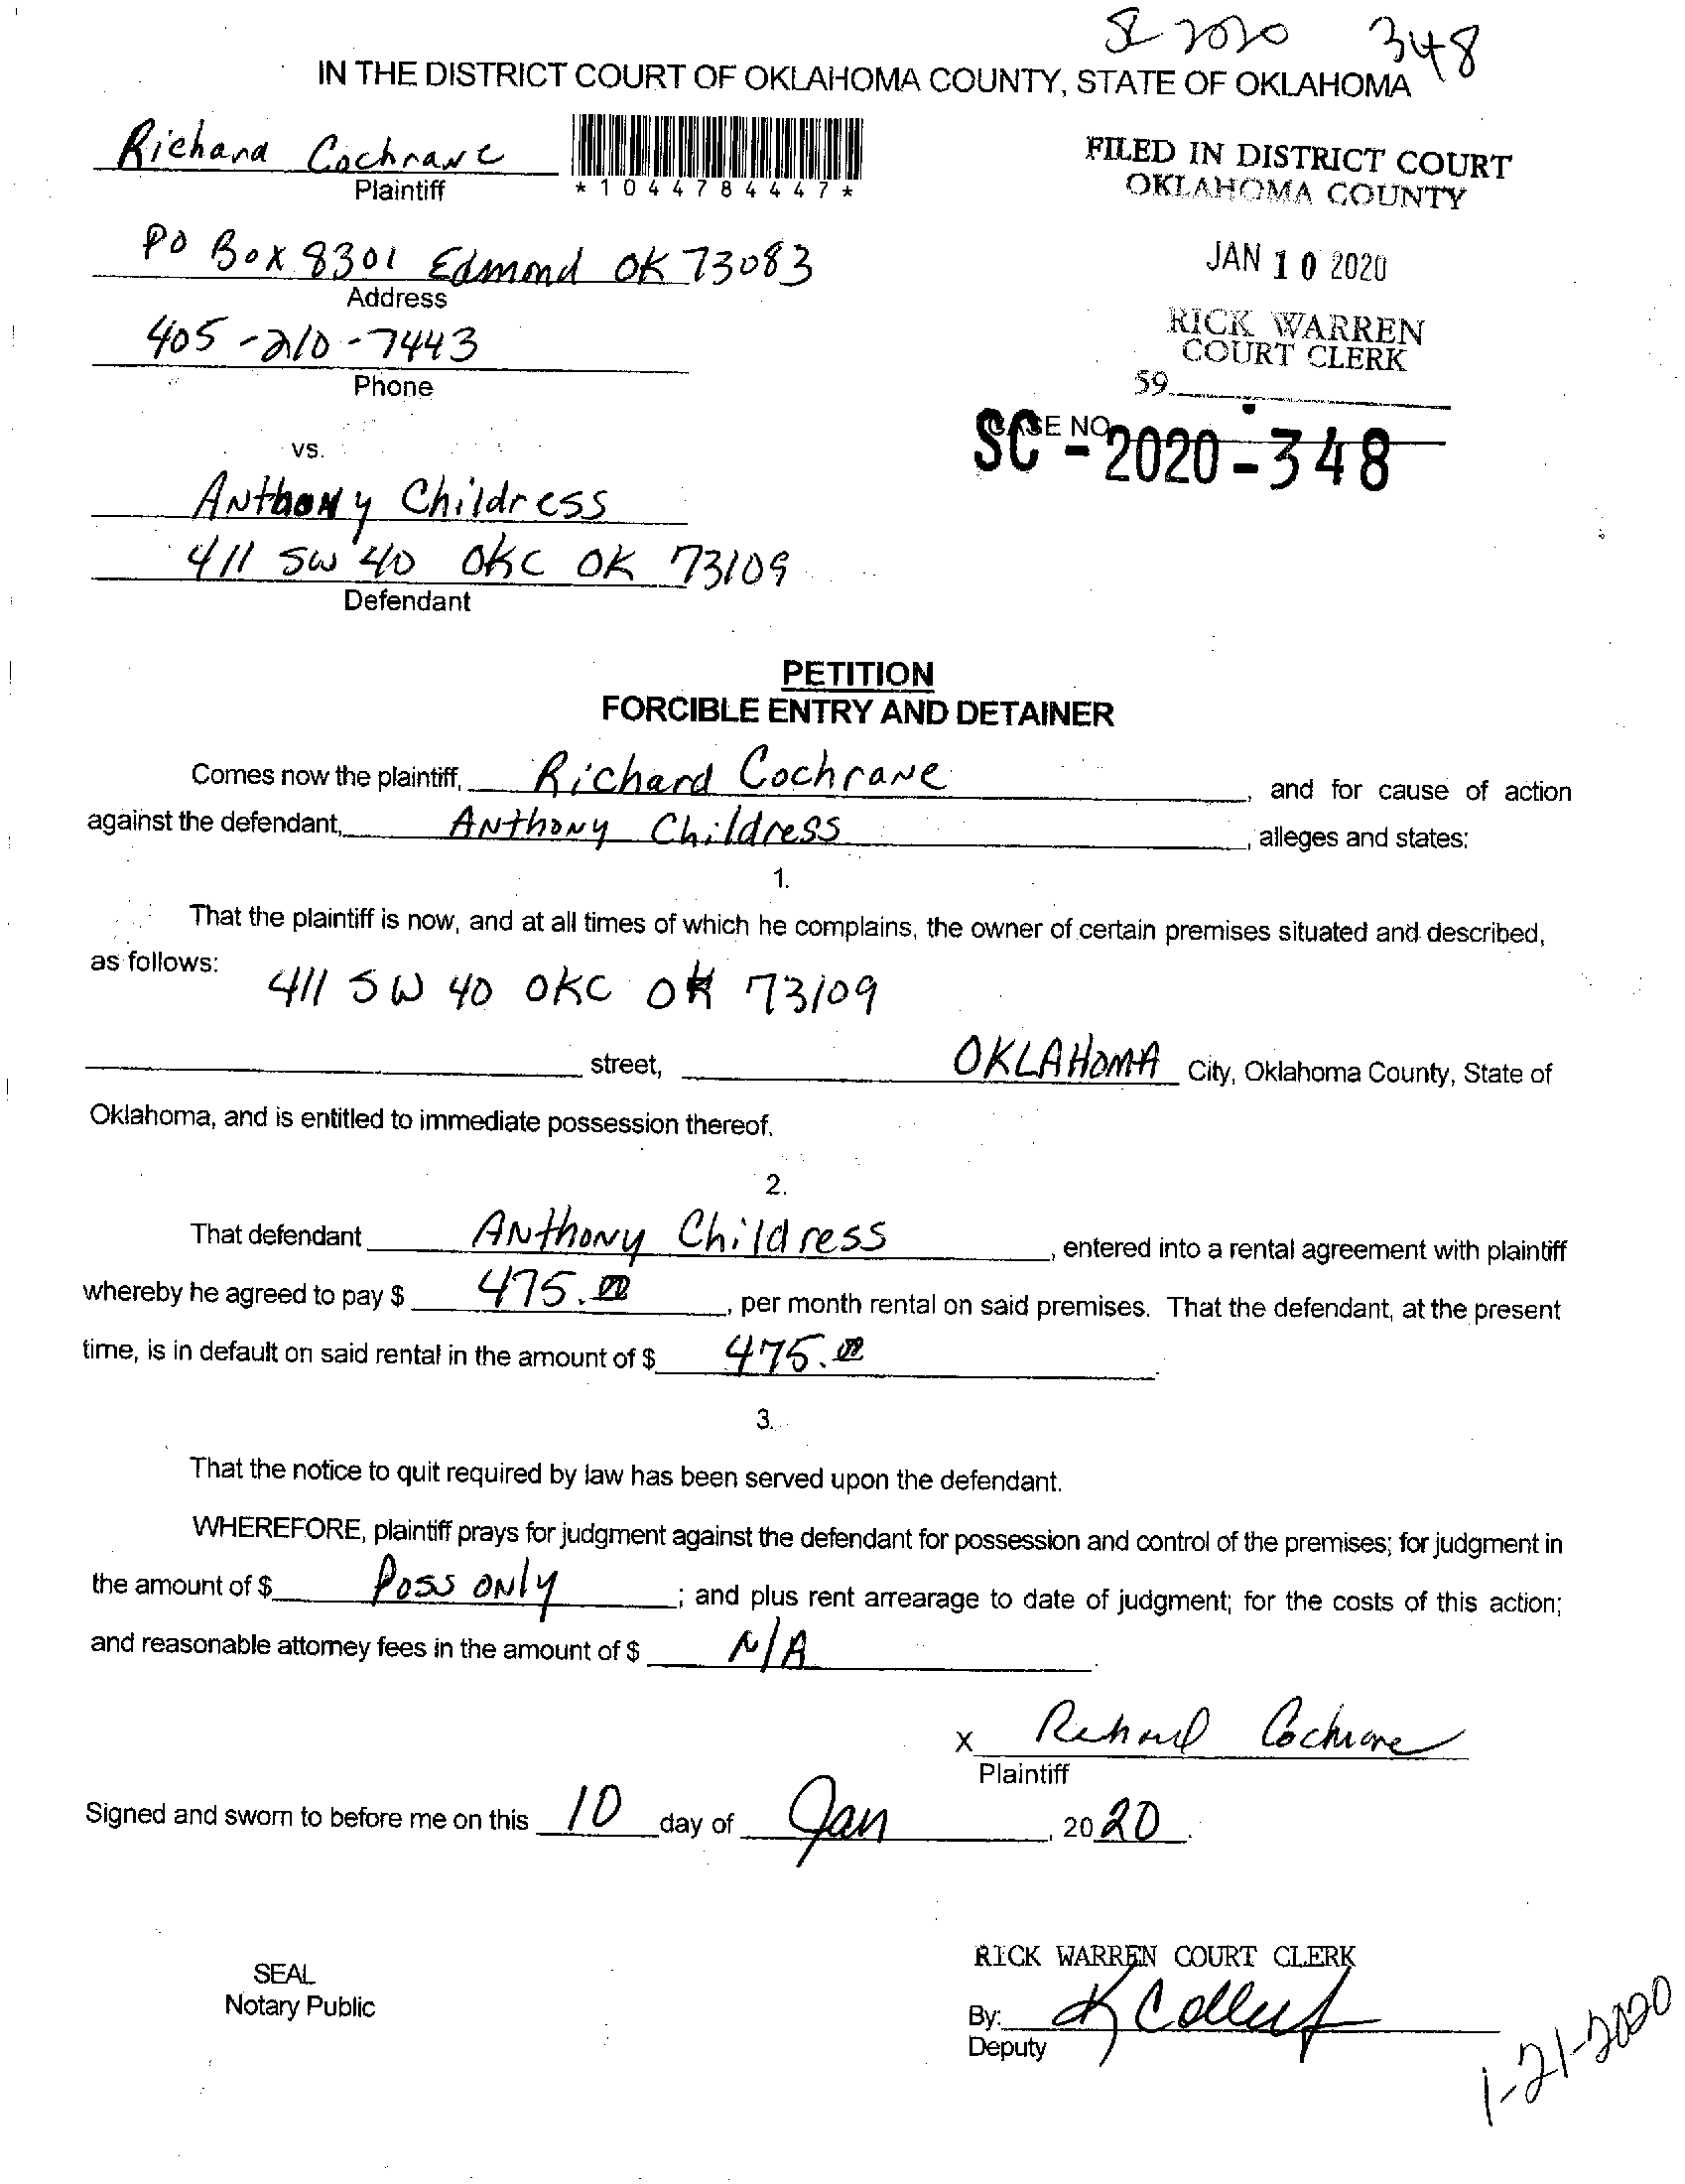 SC 2020 348
IN THE DISTRICT COURT OF OKLAHOMA COUNTY, STATE OF OKLAHOMA
Richard Cochrane
Plaintiff
*1044784447*
FILED IN DISTRICT COURT
OKLAHOMA COUNTY
PO Box 8301 Edmond OK 73083
Address
JAN 10 2020
405-210-7443
Phone
RICK WARREN
COURT CLERK
59
CASE NO
SC-2020-348
vs.
Anthony Childress
411 SW 40 OKC OK 73109
Defendant
PETITION
FORCIBLE ENTRY AND DETAINER
Comes now the plaintiff, Richard Cochrane, and for cause of action
against the defendant, Anthony Childress, alleges and states:
1.
That the plaintiff is now, and at all times of which he complains, the owner of certain premises situated and described,
as follows:
411 SW 40 OKC OK 73109
street, OKLAHOMA City, Oklahoma County, State of
Oklahoma, and is entitled to immediate possession thereof.
2.
That defendant Anthony Childress, entered into a rental agreement with plaintiff
whereby he agreed to pay $ 475.00, per month rental on said premises. That the defendant, at the present
time, is in default on said rental in the amount of $ 475.00.
3.
That the notice to quit required by law has been served upon the defendant.
WHEREFORE, plaintiff prays for judgment against the defendant for possession and control of the premises; for judgment in
the amount of $ Poss only; and plus rent arrearage to date of judgment; for the costs of this action;
and reasonable attorney fees in the amount of $ N/A.
x Richard Cochrane
Plaintiff
Signed and sworn to before me on this 10 day of Jan, 2020.
SEAL
Notary Public
RICK WARREN COURT CLERK
By:
Deputy
1-21-2020